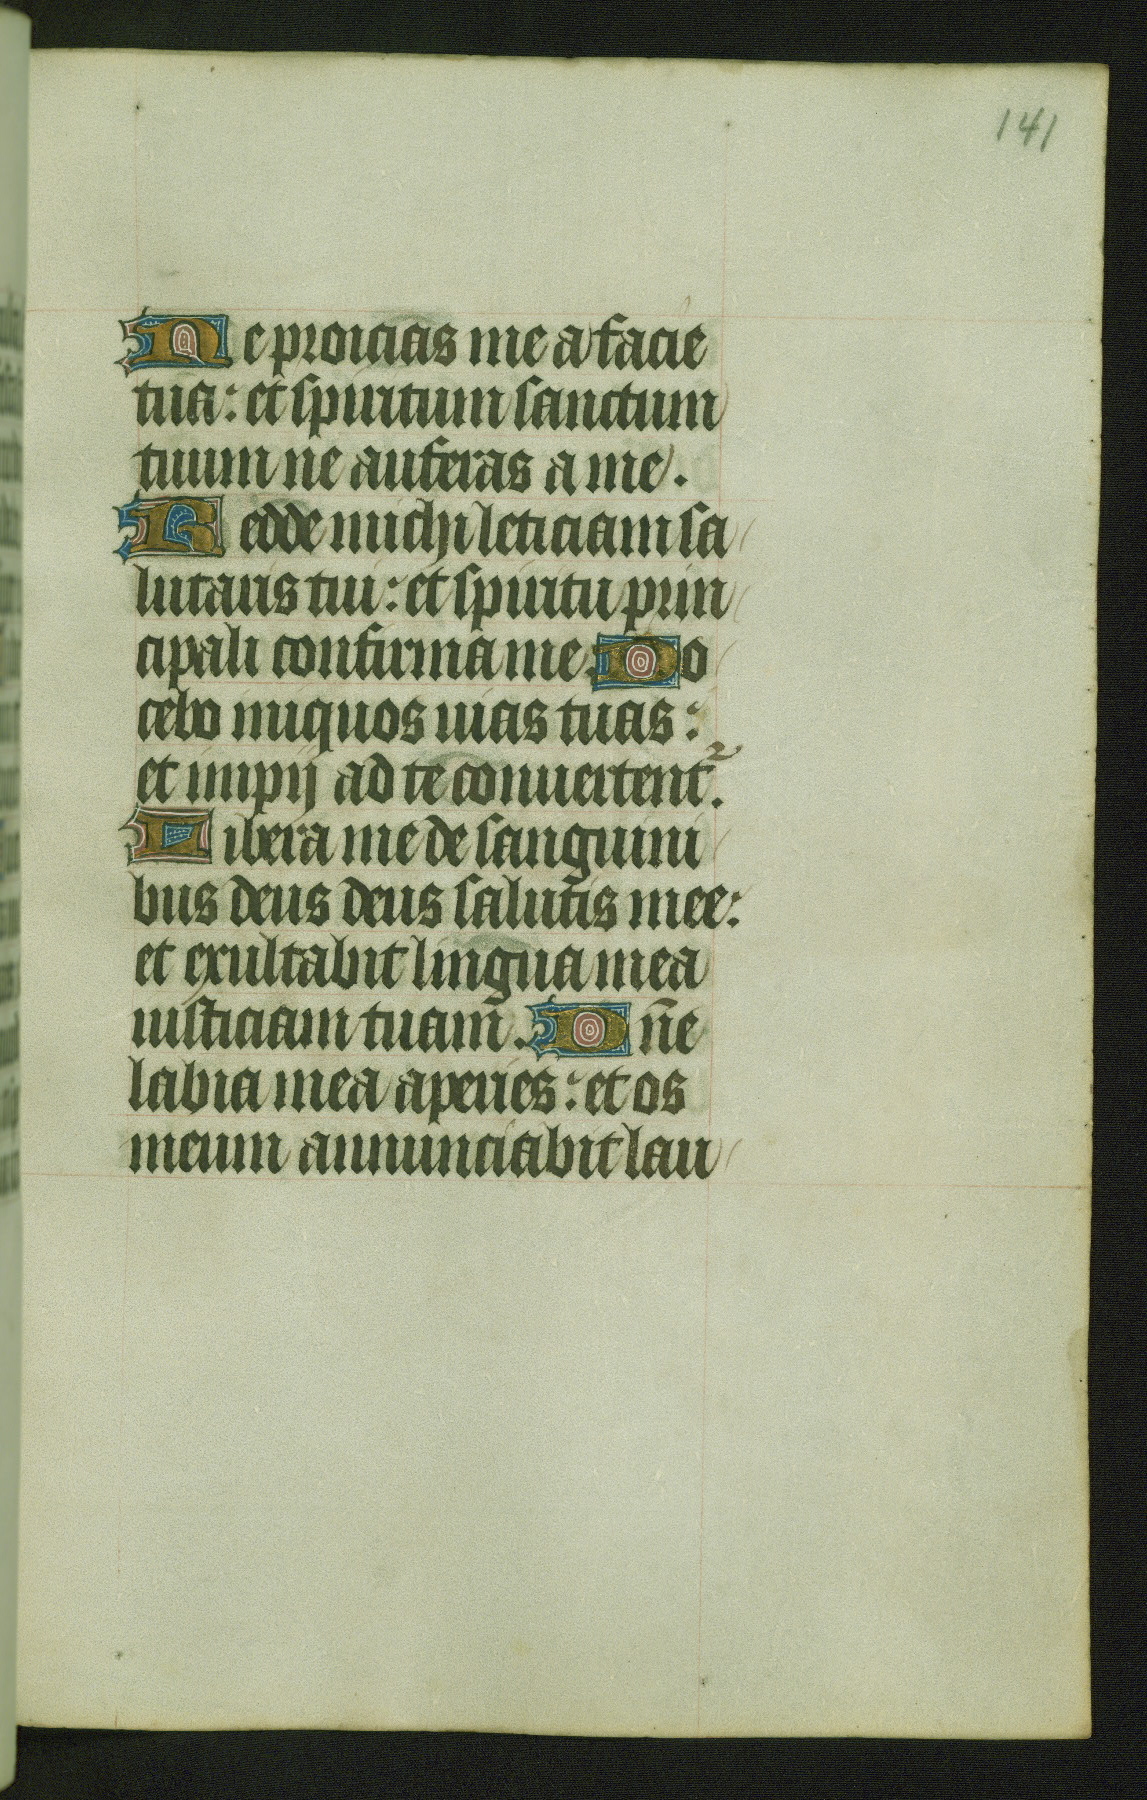 141
Ne proicias me a facie
tua: et spiritum sanctum
tuum ne auferas a me.
Redde michi leticiam sa
lutaris tui: et spiritu prin
cipali confirma me. Do
cebo iniquos uias tuas:
et impij ad te conuertent᷑.
Libera me de sanguini
bus deus deus salutis mee:
et exultabit lingua mea
iusticiam tuam̄. Dn̄e
labia mea aperies: et os
meum annunciabit lau